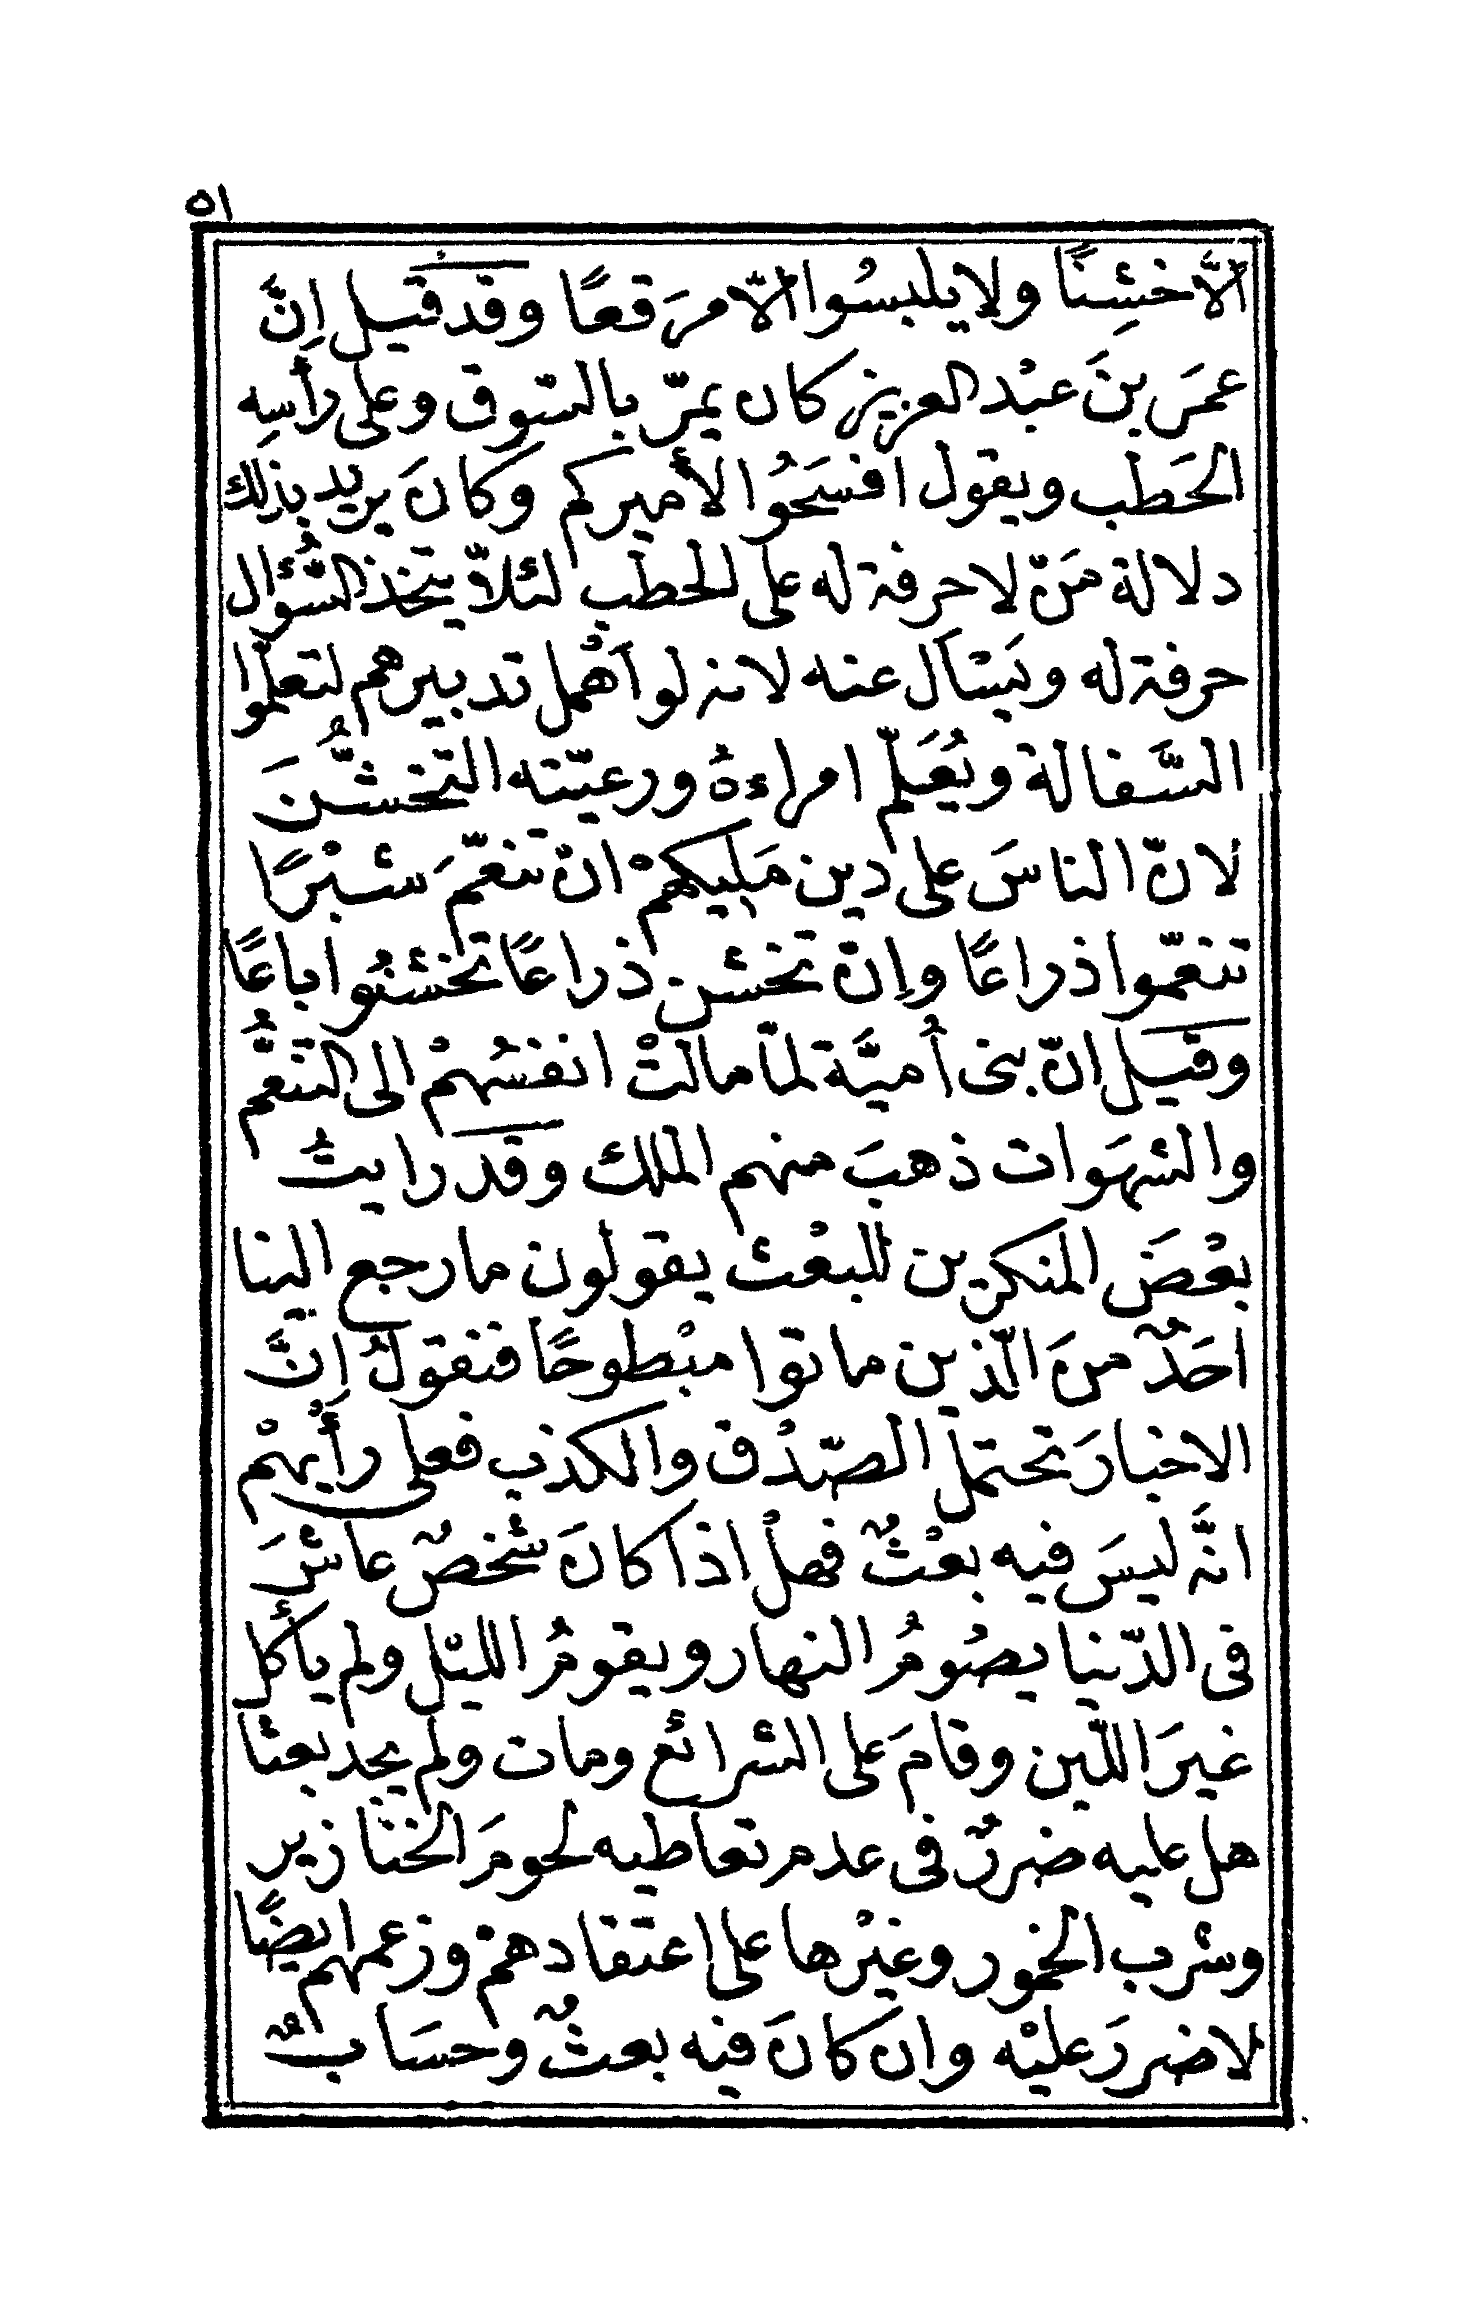 ٥١
الاَّ خشِنًا ولا يلبسُوا الاّ مرَقعًا وقد قيل اِنَّ
عمَر بنَ عبْد العزيز كان يمرّ بالسّوق وعلى رأسِه
الحَطب ويقول افسَحُوا لأميركم وكانَ يريد بذلك
دلالة مَنّ لا حرفة له على الحطب لئلاّ يتخذ السُّؤال
حرفة له ويَسْأل عنه لانه لو اَهْمل تدبيرهم لتعلّموا
السَّفالة ويُعَلّم امراءهُ ورعيّته التخشُّنَ
لانّ الناسَ على دين مَليكهمْ انّ تنعّمَ شبْرًا
تنعّموا ذراعًا واِنّ تخشن ذراعًا تخشنُوا باعًا
وقيل اِنّ بنى أميَّة لمّا مالتْ انفسُهمْ الى التنعُّم
والشهَوات ذهبَ منهم الملك وقد رايتُ
بعْضَ المنكرين للبعْث يقولون ما رجع الينا
احَدٌ منَ الّذين ماتوا مبْطوحًا فنقولُ اِنَّ
الاخبارَ تحتمل الصّدْق والكذب فعلى رأيهمْ
انَّه ليسَ فيه بعْثٌ فهلْ اذا كانَ شخصٌ عاشَ
فى الدّنيا يصُومُ النهار ويقومُ الليّل ولم يأكل
غيرَ اللّبن وقامَ على الشرائع ومات ولم يجد بعثا
هل عليه ضررٌ فى عدم تعاطيه لحومَ الخنازير
وشرب الخمور وغيْرها على اعتقادهمْ وزعمهم ايضًا
لا ضررَ عليْه وان كانَ فيه بعثٌ وحسَابٌ